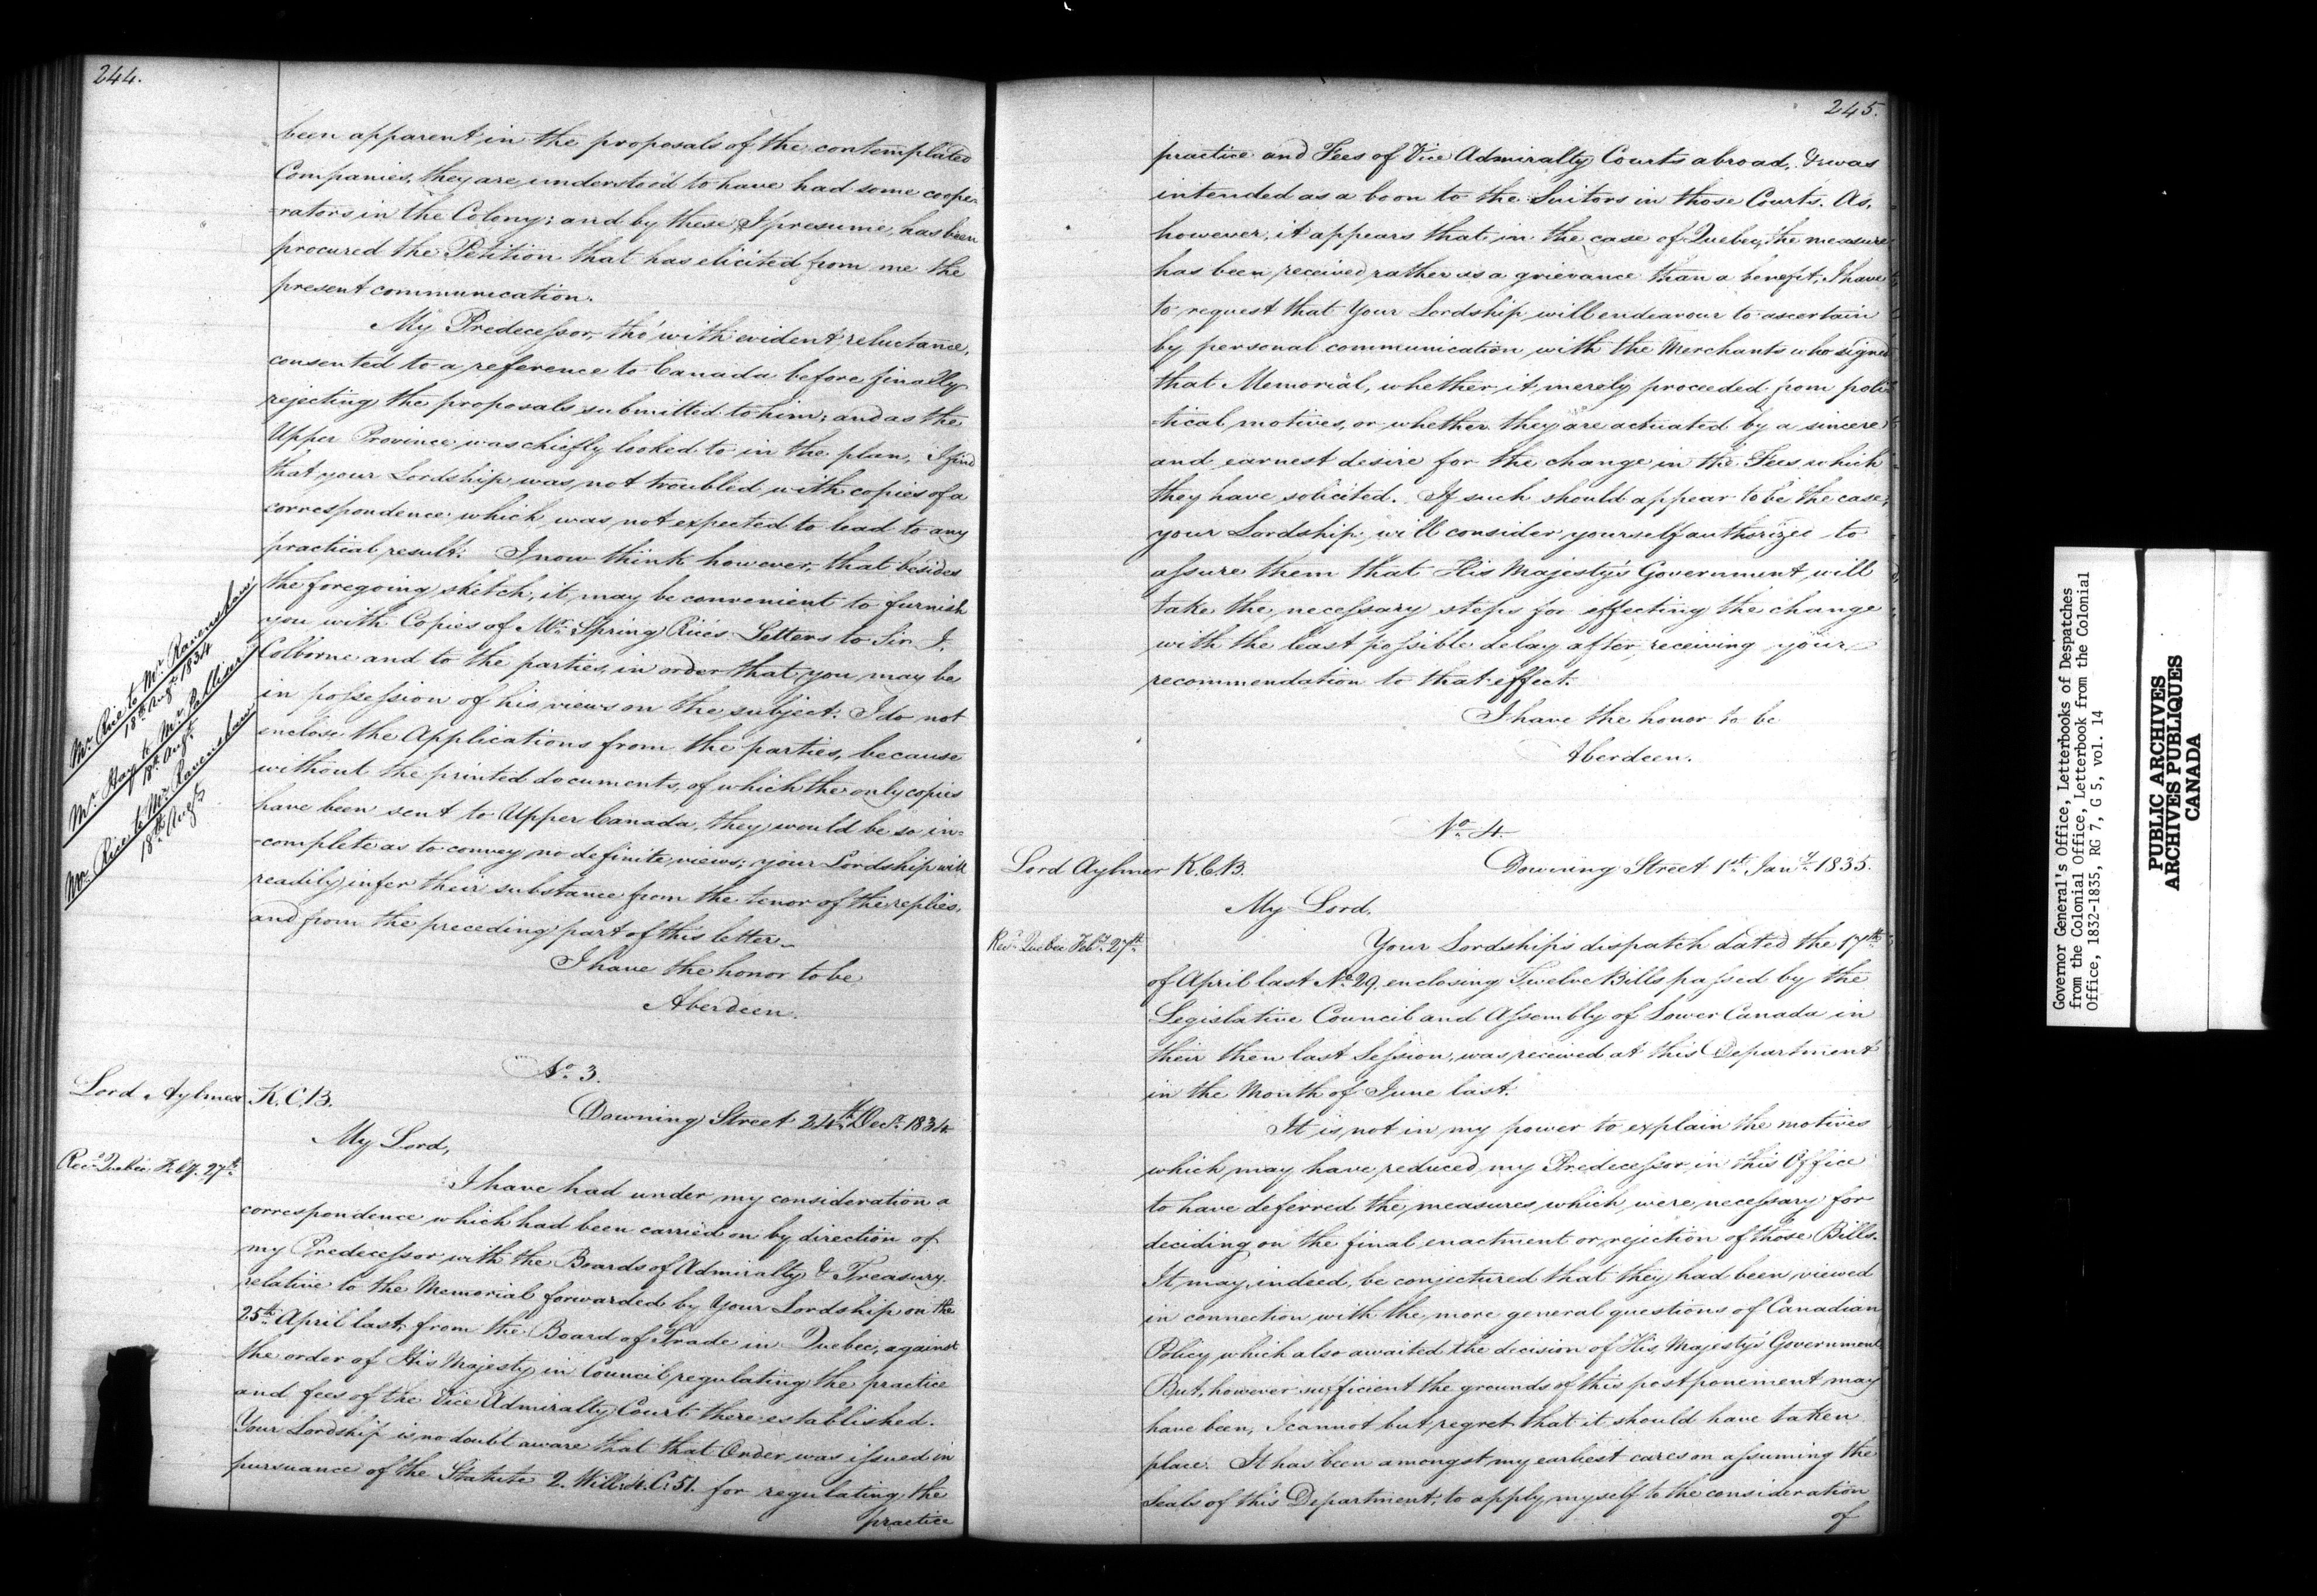 244.
been apparent in the proposals of the contemplated
Companies, they are understood to have had some coope-
-rators in the Colony; and by these, I presume, has been
procured the Petition that has elicited from me the
present communication.
My Predecessor, tho' with evident reluctance,
consented to a reference to Canada before finally
rejecting the proposals submitted to him; and as the
Upper Province was chiefly looked to in the plan, I find
that your Lordship was not troubled with copies of a
correspondence which was not expected to lead to any
practical result. I now think however, that besides
the foregoing sketch, it may be convenient to furnish
you with Copies of Mr. Spring Rice's Letters to Sir J.
Colborne and to the parties, in order that you may be
in possession of his views on the subject. I do not
enclose the Applications from the parties, because
without the printed documents, of which the only copies
have been sent to Upper Canada, they would be so in-
-complete as to convey no definite views; your Lordship will
readily infer their substance from the tenor of the replies,
and from the preceding part of this letter.
I have the honor to be
Aberdeen.
Mr. Rice to Mr. Ravenshaw
18th Augt. 1834
Mr. Hay to Mr.
18th Augt.
Mr. Rice to Mr. Ravenshaw
18th Augt.
No. 3.
Lord Aylmer K.C.B.
Downing Street 24th Decr. 1834
My Lord,
Recd. Quebec Feby. 27th.
I have had under my consideration a
correspondence which had been carried on by direction of
my Predecessor with the Boards of Admiralty & Treasury
relative to the Memorial forwarded by Your Lordship on the
25th April last, from the Board of Trade in Quebec, against
the order of His Majesty in Council regulating the practice
and fees of the Vice Admiralty Court there established.
Your Lordship is no doubt aware that that Order was issued in
pursuance of the Statute 2. Will: 4. C: 51. for regulating the
practice
245.
practice and Fees of Vice Admiralty Courts abroad, & was
intended as a boon to the Suitors in those Courts. As,
however, it appears that in the case of Quebec, the measure
has been received rather as a grievance than a benefit, I have
to request that Your Lordship will endeavour to ascertain
by personal communication with the Merchants who signed
that Memorial, whether it merely proceeded from poli-
-tical motives, or whether they are actuated by a sincere
and earnest desire for the change in the Fees which
they have solicited. If such should appear to be the case,
your Lordship will consider yourself authorized to
assure them that His Majesty's Government will
take the necessary steps for effecting the change
with the least possible delay after receiving your
recommendation to that effect.
I have the honor to be
Aberdeen.
No. 4.
Lord Aylmer K.C.B.
Downing Street 1st Jany. 1835.
My Lord,
Recd. Quebec Feby. 27th.
Your Lordship's dispatch dated the 17th
of April last No. 29 enclosing Twelve Bills passed by the
Legislative Council and Assembly of Lower Canada in
their then last Session, was received at this Department
in the Month of June last.
It is not in my power to explain the motives
which may have reduced my Predecessor in this Office
to have deferred the measures which were necessary for
deciding on the final enactment or rejection of those Bills.
It may, indeed, be conjectured that they had been viewed
in connection with the more general questions of Canadian
Policy which also awaited the decision of His Majesty's Government
But, however sufficient the grounds of this postponement may
have been, I cannot but regret that it should have taken
place. It has been amongst my earliest cares on assuming the
Seals of this Department, to apply myself to the consideration
of
Governor General's Office, Letterbooks of Despatches
from the Colonial Office, Letterbook from the Colonial
Office, 1832-1835, RG 7, G 5, vol. 14
PUBLIC ARCHIVES
ARCHIVES PUBLIQUES
CANADA